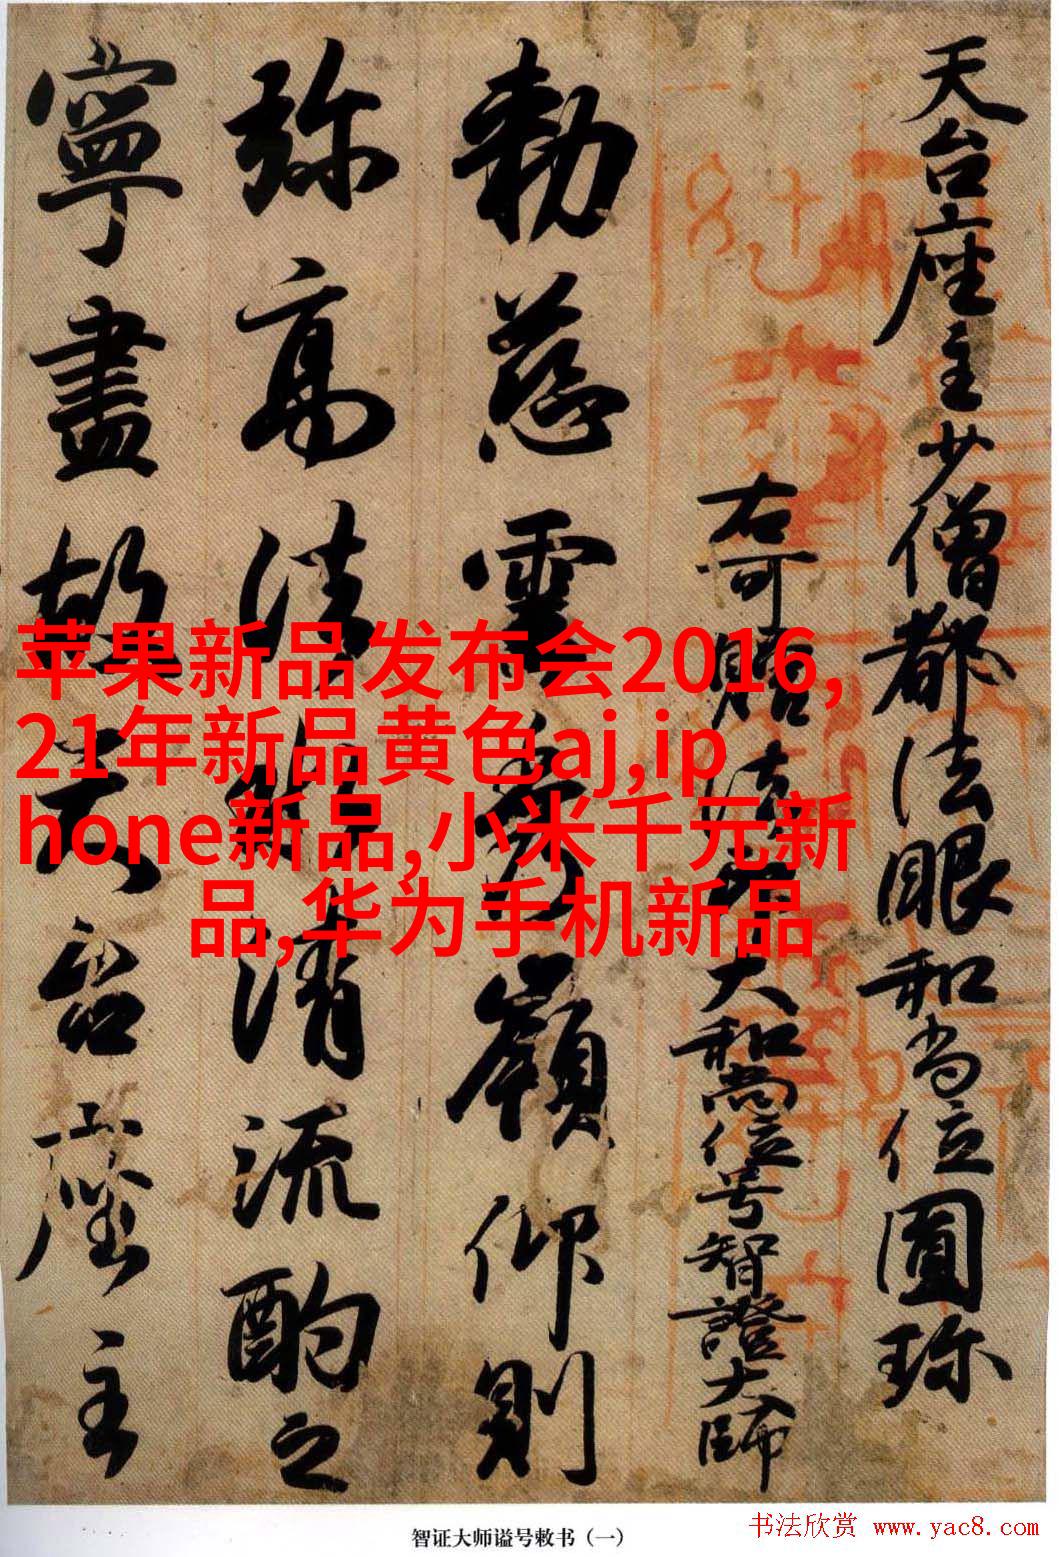 天台座主少僧都法眼和尚位圓珎
右可贈法印大和尚位号智證大師
勅慈雲秀嶺仰則
弥高法水清流酌之
寧盡故天台座主
苹果新品发布会2016,
21年新品黄色aj,ip
hone新品,小米千元新
品,华为手机新品
智证大师谥号敕书（一）
书法欣赏 www.yac8.com